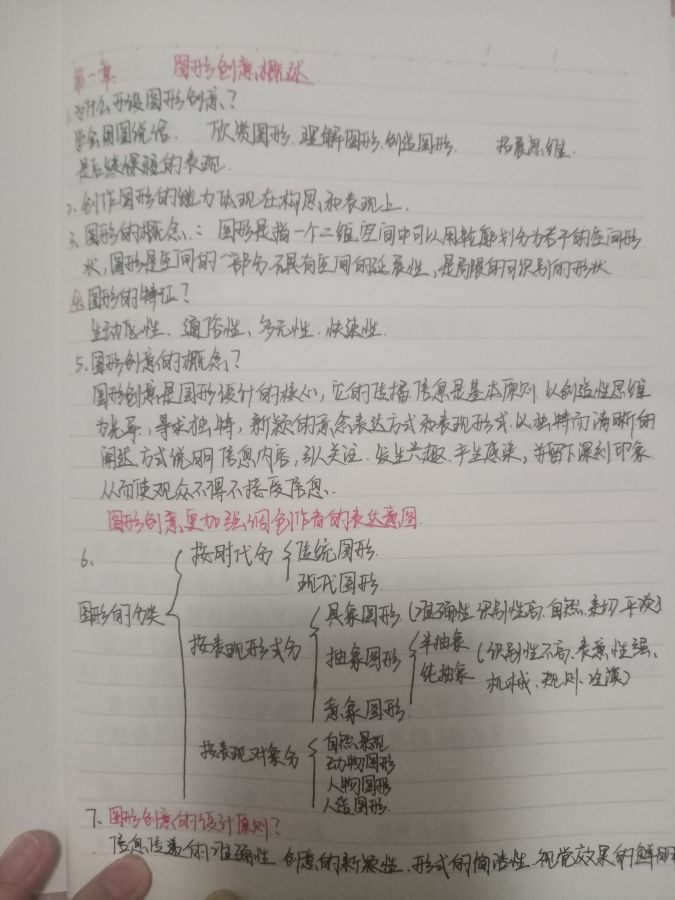 第一章 图形创意概述
1.为什么开设图形创意?
学会用图说话. 欣赏图形.理解图形.创造图形. 拓展思维.
是后续课程的表现.
2.创作图形的能力体现在构思和表现上.
3.图形的概念:图形是指一个二维空间中可以用轮廓划分为若干的空间形
状,图形是空间的一部分不具有空间的延展性,是局限的可识别的形状
4.图形的特征?
生动性、通俗性、多元性.快速性.
5.图形创意的概念?
图形创意是图形设计的核心,它的传播信息是基本原则.以创造性思维
为先导,寻求独特,新颖的意念表达方式和表现形式.以独特而清晰的
阐述方式说明信息内容,引人关注.发生兴趣.产生感染,并留下深刻印象
从而使观众不得不接受信息.
图形创意更加强调创作者的表达意图.
6、
按时代分 传统图形.
现代图形.
图形的分类
具象图形(准确性.识别性高.自然.亲切.平淡)
按表现形式分 抽象图形 半抽象
纯抽象 (识别性不高.表意性强、
机械、规则.冷漠)
意象图形.
按表现对象分 自然景观
动物图形
人物图形
人造图形.
7、图形创意的设计原则?
信息传递的准确性.创意的新颖性.形式的简洁性.视觉效果的鲜明